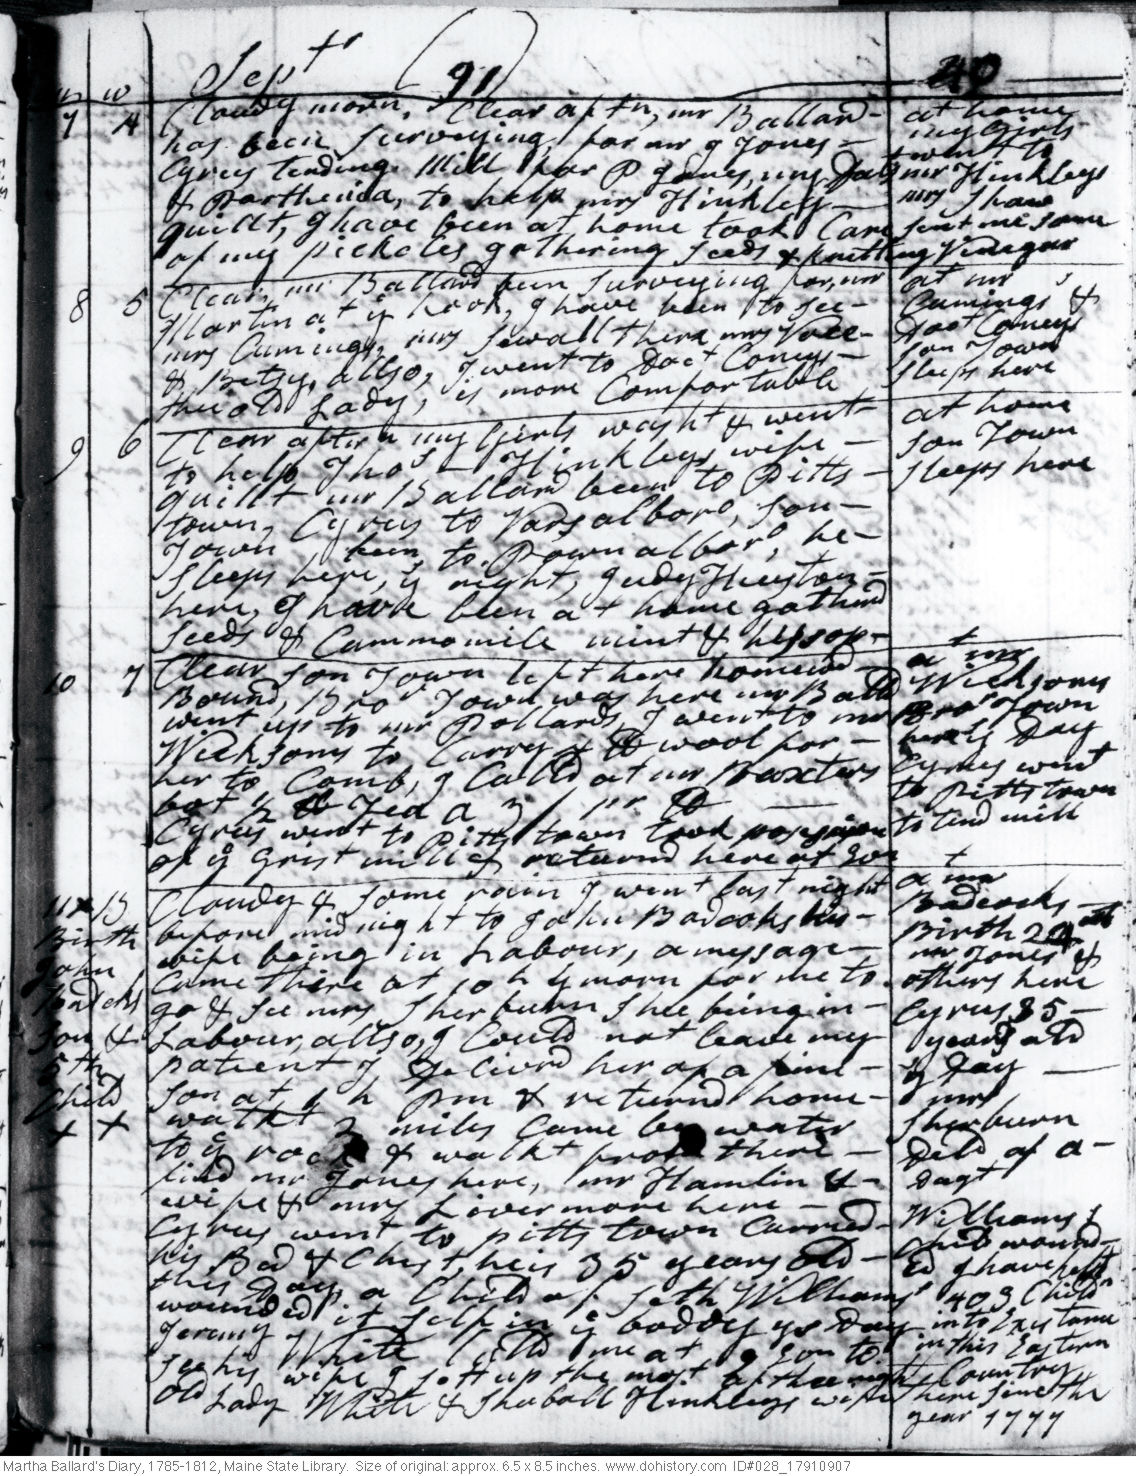 Sept 91
40
7 4 Cloudy morn. Clear aftn, mr Ballard
has been Surveying for mr J Jones
Cyrus tending Mill for P Jones, my
& Parthenia, to help mrs Hinkley
quillt, I have been at home took Care
of my Pickcles gathering Seeds & knitting
at home
my Girls
went to
mr Hinkleys
mrs Shaw
sent me some
Vinegar
8 5 Clear, mr Ballard been Surveying for mr
Martin at ye hook, I have been to see
mrs Cumings, mrs Sewall there mrs
& Betsy, allso, I went to Doct Conys
the old Lady, is more Comfortable
at mr
Cumings &
Doct Conys
son Town
sleeps here
9 6 Clear aftern my Girls washt & went
to help Thos Hinkleys wife
quillt mr Ballard been to Pitts
town, Cyrus to Varsalboro, son
Town been to Pownalboro, he
sleeps here, ye night, Judy Huston
here, I have been at home gatherd
seeds & Cammomile mint & hysop
at home
son Town
sleeps here
10 7 Clear son Town left here homewd
Bound, Bro Town was here mr Balld
went up to mr Pollards, I went to mr
Wicksons to Carry wool for
her to Comb, I Calld at mr Baxters
bot ½ lb Tea a 3/ pr lb
Cyrus went to Pitts town took posesion
of ye Grist mill & returnd here at Evn
at mr
Wicksons
Bro Town
here ye Day
Cyrus went
to Pittstown
to tend mill
11 B Cloudy & some rain I went last night
before midnight to John Badcoks his
wife being in Labour, a message
Came there at 10 h ye morn for me to
go & see mrs Sherburn shee being in
Labour, allso, I Could not leave my
patient I Delivrd her of a fine
son at 1 h Pm & returnd home
walkt 2 miles Came by water
to ye & walkt from there
find mr Jones here, mr Hamlin &
wife & mrs Livermore here
Cyrus went to pitts town Carried
his Bed & Chest, he is 35 years old
this Day, a Child of Seth Williams
wounded it self in ye boddy ys Day
Jeremy White Calld me at Evn to
see his wife I sett up the most of the night
old Lady White & Shuball Hinkleys wife
Birth
John
Badcoks
son &
5th
Child
x x
at mr
Badcocks
Birth 24th
mr Jones &
others here
Cyrus 35
years old
ye Day
mrs
Sherburn
Deld of a
Dagt
Williams
Child wound
ed I have
403 Childn
into Existance
in this Eastern
Country
there since the
year 1777
Martha Ballard's Diary, 1785-1812, Maine State Library. Size of original: approx. 6.5 x 8.5 inches. www.dohistory.com ID#028_17910907